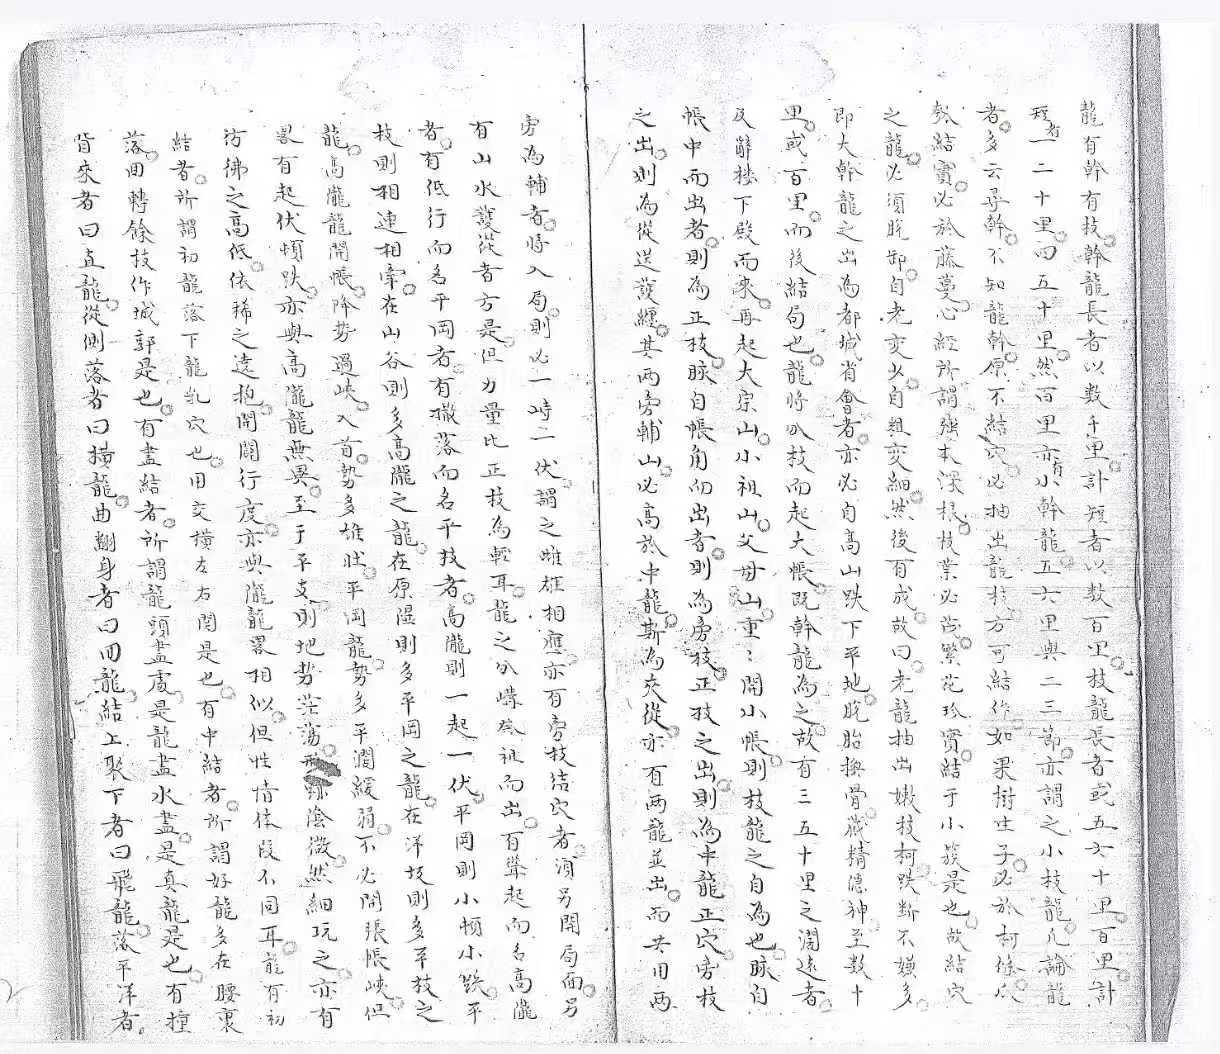 龍有幹有枝幹龍長者以数千里計短者以数百里枝龍長者或五六十里百里計
短者一二十里四五十里然百里亦有小幹龍五六里與二三節亦謂之小枝龍凡論龍
者多云尋幹不知龍幹原不結穴必抽出龍枝方可結作如果樹生子必於柯條瓜
瓠結實必於藤蔓心經所謂強本深根枝葉必茂繁花珍實結于小簇是也故結穴
之龍必須脫卸自老変少自粗変細然後有成故曰老龍抽出嫩枝柯跌断不嫌多
即大幹龍之出為都城省會者亦必自高山跌下平地脫胎換骨藏精隱神至数十
里或百里而後結局也龍将分枝而起大帳既幹龍為之故有三五十里之濶遠者
及辭楼下殿而來再起大宗山小祖山父母山重：開小帳則枝龍之自為也脉自
帳中而出者則為正枝脉自帳角而出者則為旁枝正枝之出則為中龍正穴旁枝
之出則為從送護纏其两旁輔山必高於中龍斯為夾從亦有两龍並出而共用两
旁為輔者将入局則必一時二伏謂之雌雄相應亦有旁枝结穴者湏另開局面另
有山水護從者方是但力量比正枝為輕耳龍之分嶪發祉而出有聳起而名高隴
者有低行而名平岡者有撒落而名平枝者高隴則一起一伏平岡則小頓小跌平
枝則相連相牽在山谷則多高隴之龍在原隰則多平岡之龍在洋坂則多平枝之
龍高隴龍開帳降势過峽入首势多雄壯平岡龍势多平濶緩弱不必開張帳峽但
畧有起伏頓跌亦與高隴龍無異至于平支則地势茫荡形跡陰微然細玩之亦有
彷彿之高低依稀之遠抱開闢行度亦與隴龍畧相似但性情体段不同耳龍有初
結者所謂初龍落下龍乳穴也用交横左右閗是也有中結者所謂好龍多在腰裏
落回轉餘枝作城郭是也有盡結者所謂龍頭盡處是龍盡水盡是真龍是也有撞
背來者曰直龍從側落者曰横龍曲翻身者曰回龍結上聚下者曰飛龍落平洋者